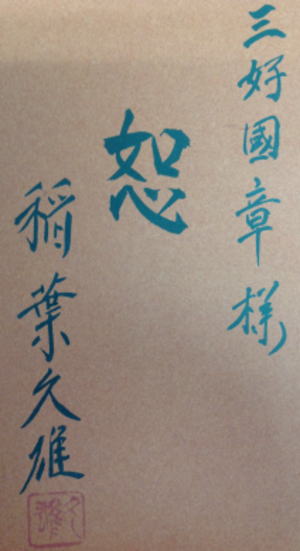 三好國章様
恕
稲葉久雄